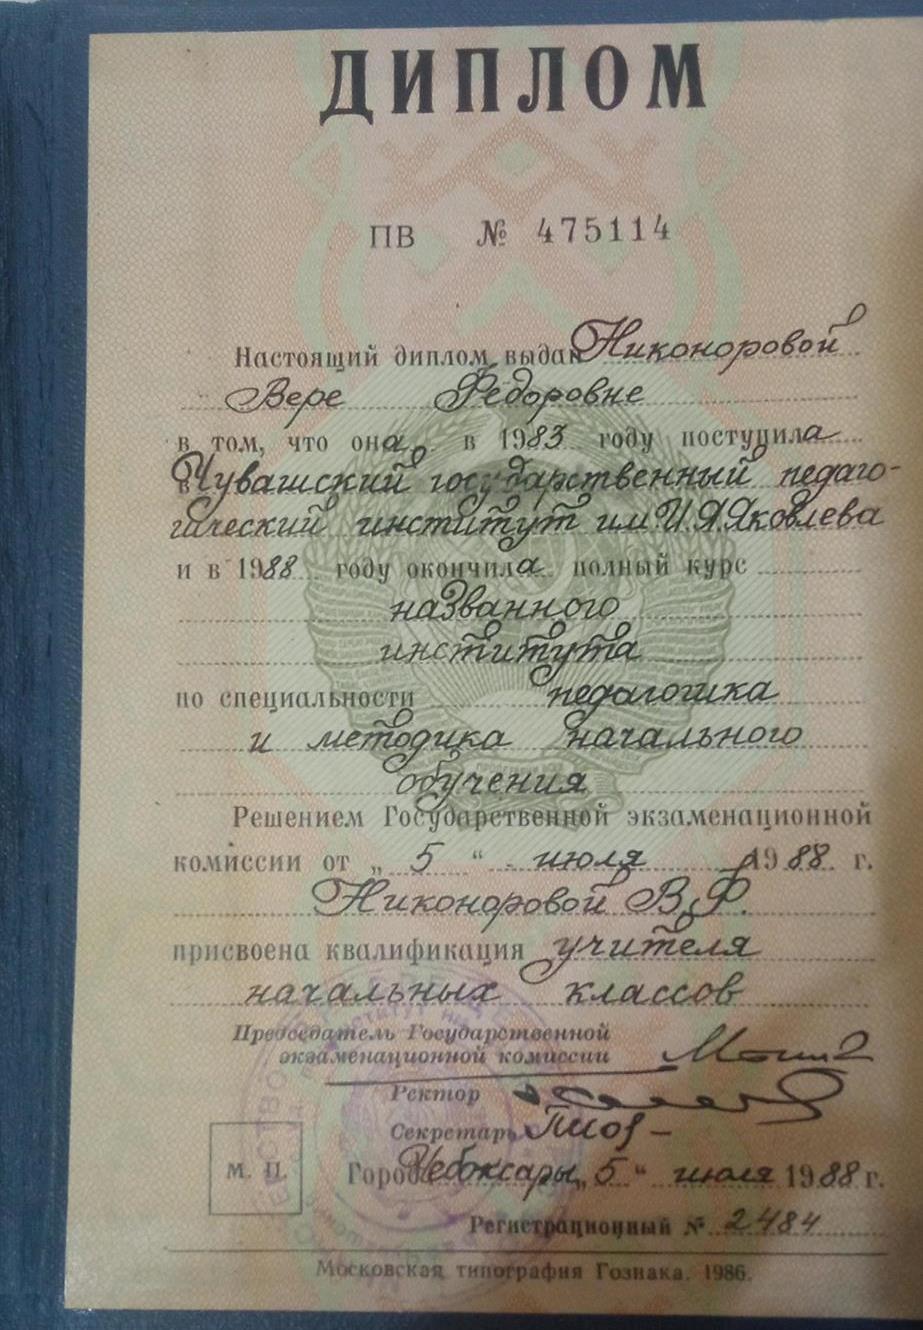 ДИПЛОМ
ПВ № 475114
Настоящий диплом выдан Никоноровой
Вере Федоровне
в том, что она в 1983 году поступила
в Чувашский государственный педаго-
гический институт им. И.Я.Яковлева
и в 1988 году окончила полный курс
названного
института
по специальности педагогика
и методика начального
обучения
Решением Государственной экзаменационной
комиссии от „ 5 “ июля 1988 г.
Никоноровой В.Ф.
присвоена квалификация учителя
начальных классов
Председатель Государственной
экзаменационной комиссии
Ректор
Секретарь
М. П.
Город Чебоксары, „ 5 “ июля 1988 г.
Регистрационный № 2484
Московская типография Гознака. 1986.